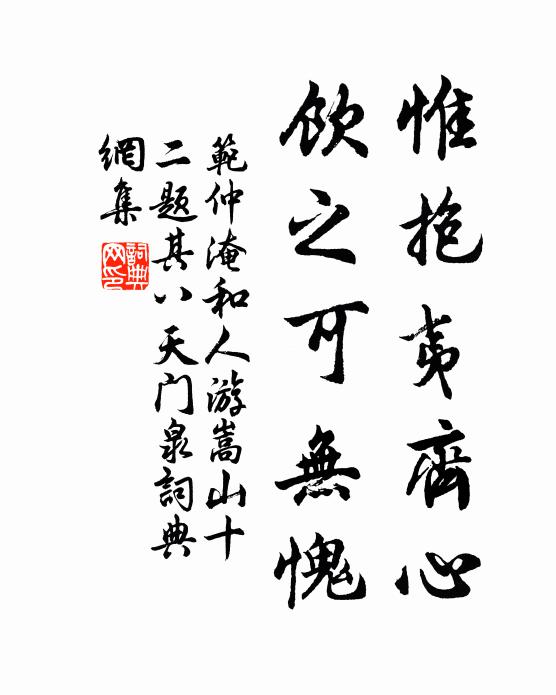 惟抱夷齊心
飲之可無愧
範仲淹和人游嵩山十
二题其八天门泉詞典
網集
詞典
网印